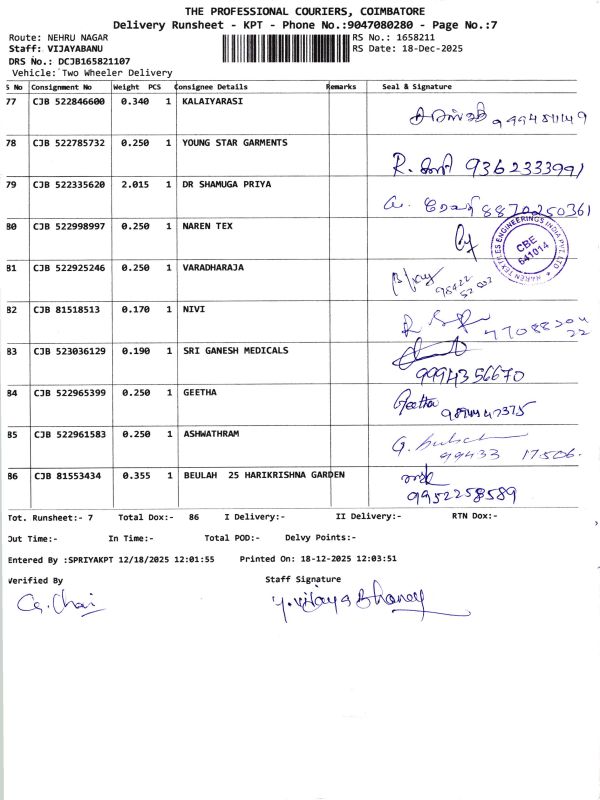 THE PROFESSIONAL COURIERS, COIMBATORE
Delivery Runsheet - KPT - Phone No.:9047080280 - Page No.:7
Route: NEHRU NAGAR RS No.: 1658211
Staff: VIJAYABANU RS Date: 18-Dec-2025
DRS No.: DCJB165821107
Vehicle: Two Wheeler Delivery
S No Consignment No Weight PCS Consignee Details Remarks Seal & Signature
77 CJB 522846600 0.340 1 KALAIYARASI
78 CJB 522785732 0.250 1 YOUNG STAR GARMENTS
9362333991
79 CJB 522335620 2.015 1 DR SHAMUGA PRIYA
8870250361
80 CJB 522998997 0.250 1 NAREN TEX
NAREN TEXTILES ENGINEERINGS INDIA PVT. LTD
CBE
641014
81 CJB 522925246 0.250 1 VARADHARAJA
82 CJB 81518513 0.170 1 NIVI
83 CJB 523036129 0.190 1 SRI GANESH MEDICALS
9994356670
84 CJB 522965399 0.250 1 GEETHA
Geetha
85 CJB 522961583 0.250 1 ASHWATHRAM
99433 17506.
86 CJB 81553434 0.355 1 BEULAH 25 HARIKRISHNA GARDEN
9952258589
Tot. Runsheet:- 7 Total Dox:- 86 I Delivery:- II Delivery:- RTN Dox:-
Out Time:- In Time:- Total POD:- Delvy Points:-
Entered By :SPRIYAKPT 12/18/2025 12:01:55 Printed On: 18-12-2025 12:03:51
Verified By Staff Signature